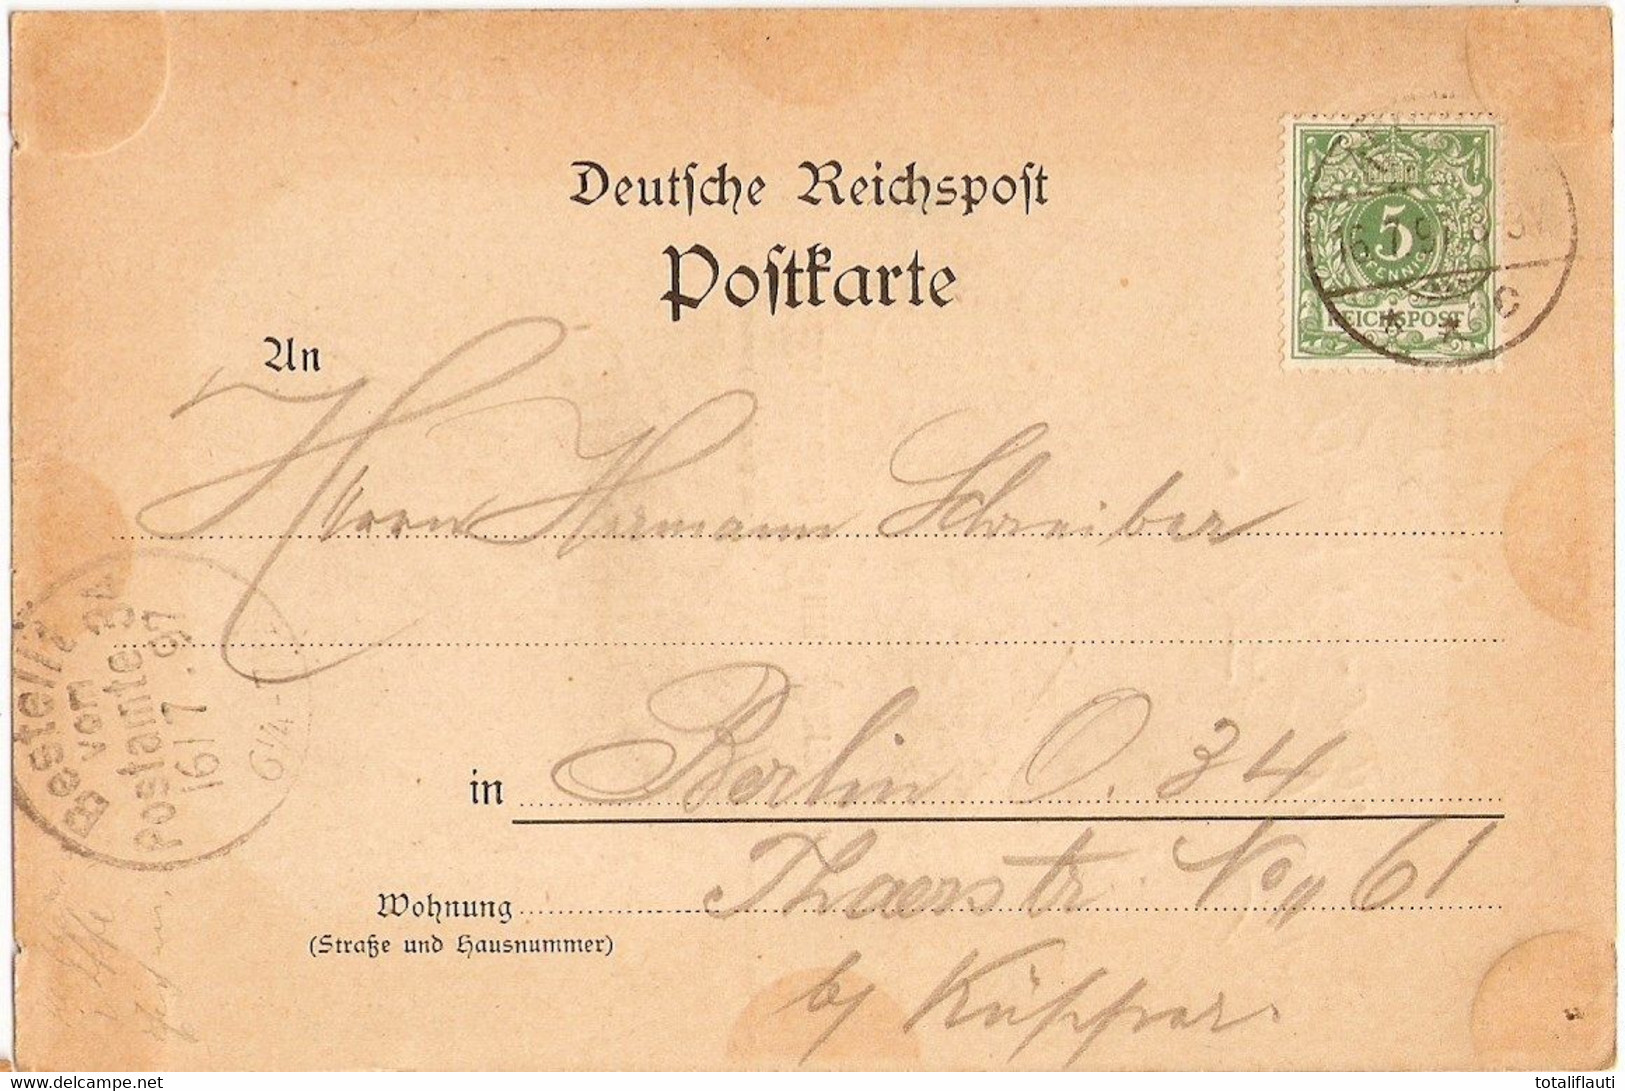 Deutsche Reichspost
Postkarte
5
PFENNIG
REICHSPOST
16. 7. 97
* * C
An
Herrn Hermann Schreiber
Bestellt
vom
Postamte 34
16/7. 97
6¼-7
in Berlin O. 34
Wohnung Thaerstr No 61
(Straße und Hausnummer)
by Küpper.
www.delcampe.net
totaliflauti